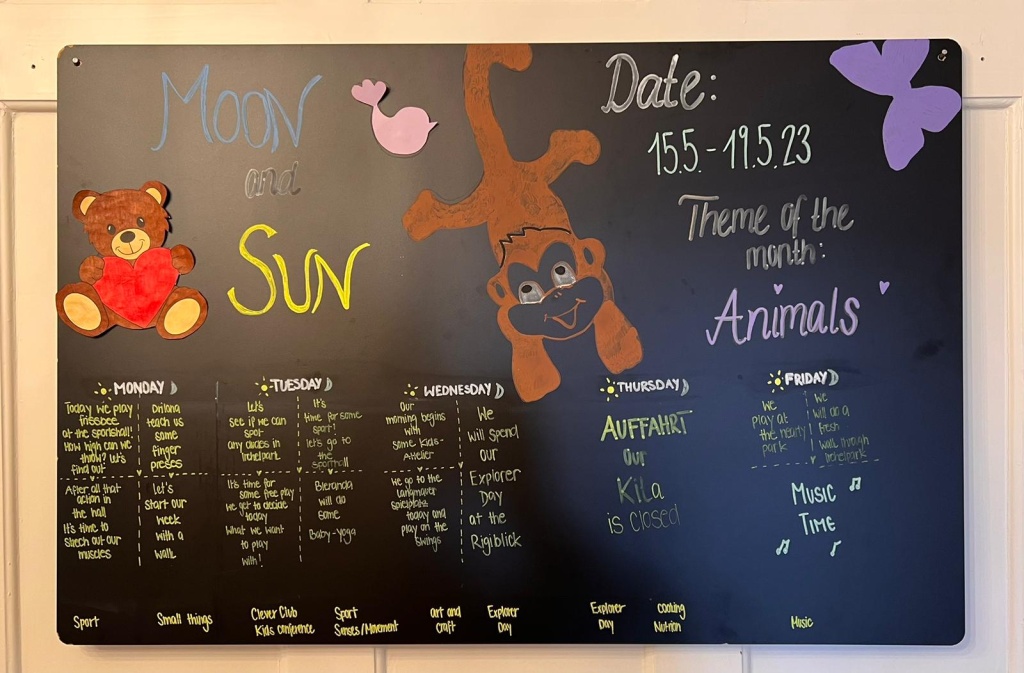 MOON
and
SUN
Date:
15.5.-19.5.23
Theme of the
month:
Animals
MONDAY
Today we play
frissbee
at the sportshall!
How high can we
throw? Let's
find out
Drilona
teach us
some
finger
presses
After all that
action in
the hall
It's time to
strech out our
muscles
let's
start our
week
with a
walk
TUESDAY
let's
see if we can
spot
any duckies in
Irchelpark
It's
time for some
sport!
let's go to
the
sporthall
It's time for
some free play
we get to decide
today
what we want
to play
with!
Bleranda
will do
some
Baby-Yoga
WEDNESDAY
Our
morning begins
with
some kids-
Atelier
We go to the
Langmauer
spielplatz
today and
play on the
swings
We
will spend
our
Explorer
Day
at the
Rigiblick
THURSDAY
AUFFAHRT
Our
Kita
is closed
FRIDAY
we
play at
the nearby
park
we
will do a
fresh
walk through
Irchelpark
MUSIC
TIME
Sport
Small things
Clever Club
Kids conference
Sport
Senses/Movement
art and
craft
Explorer
Day
Explorer
Day
cooking
Nutrion
Music